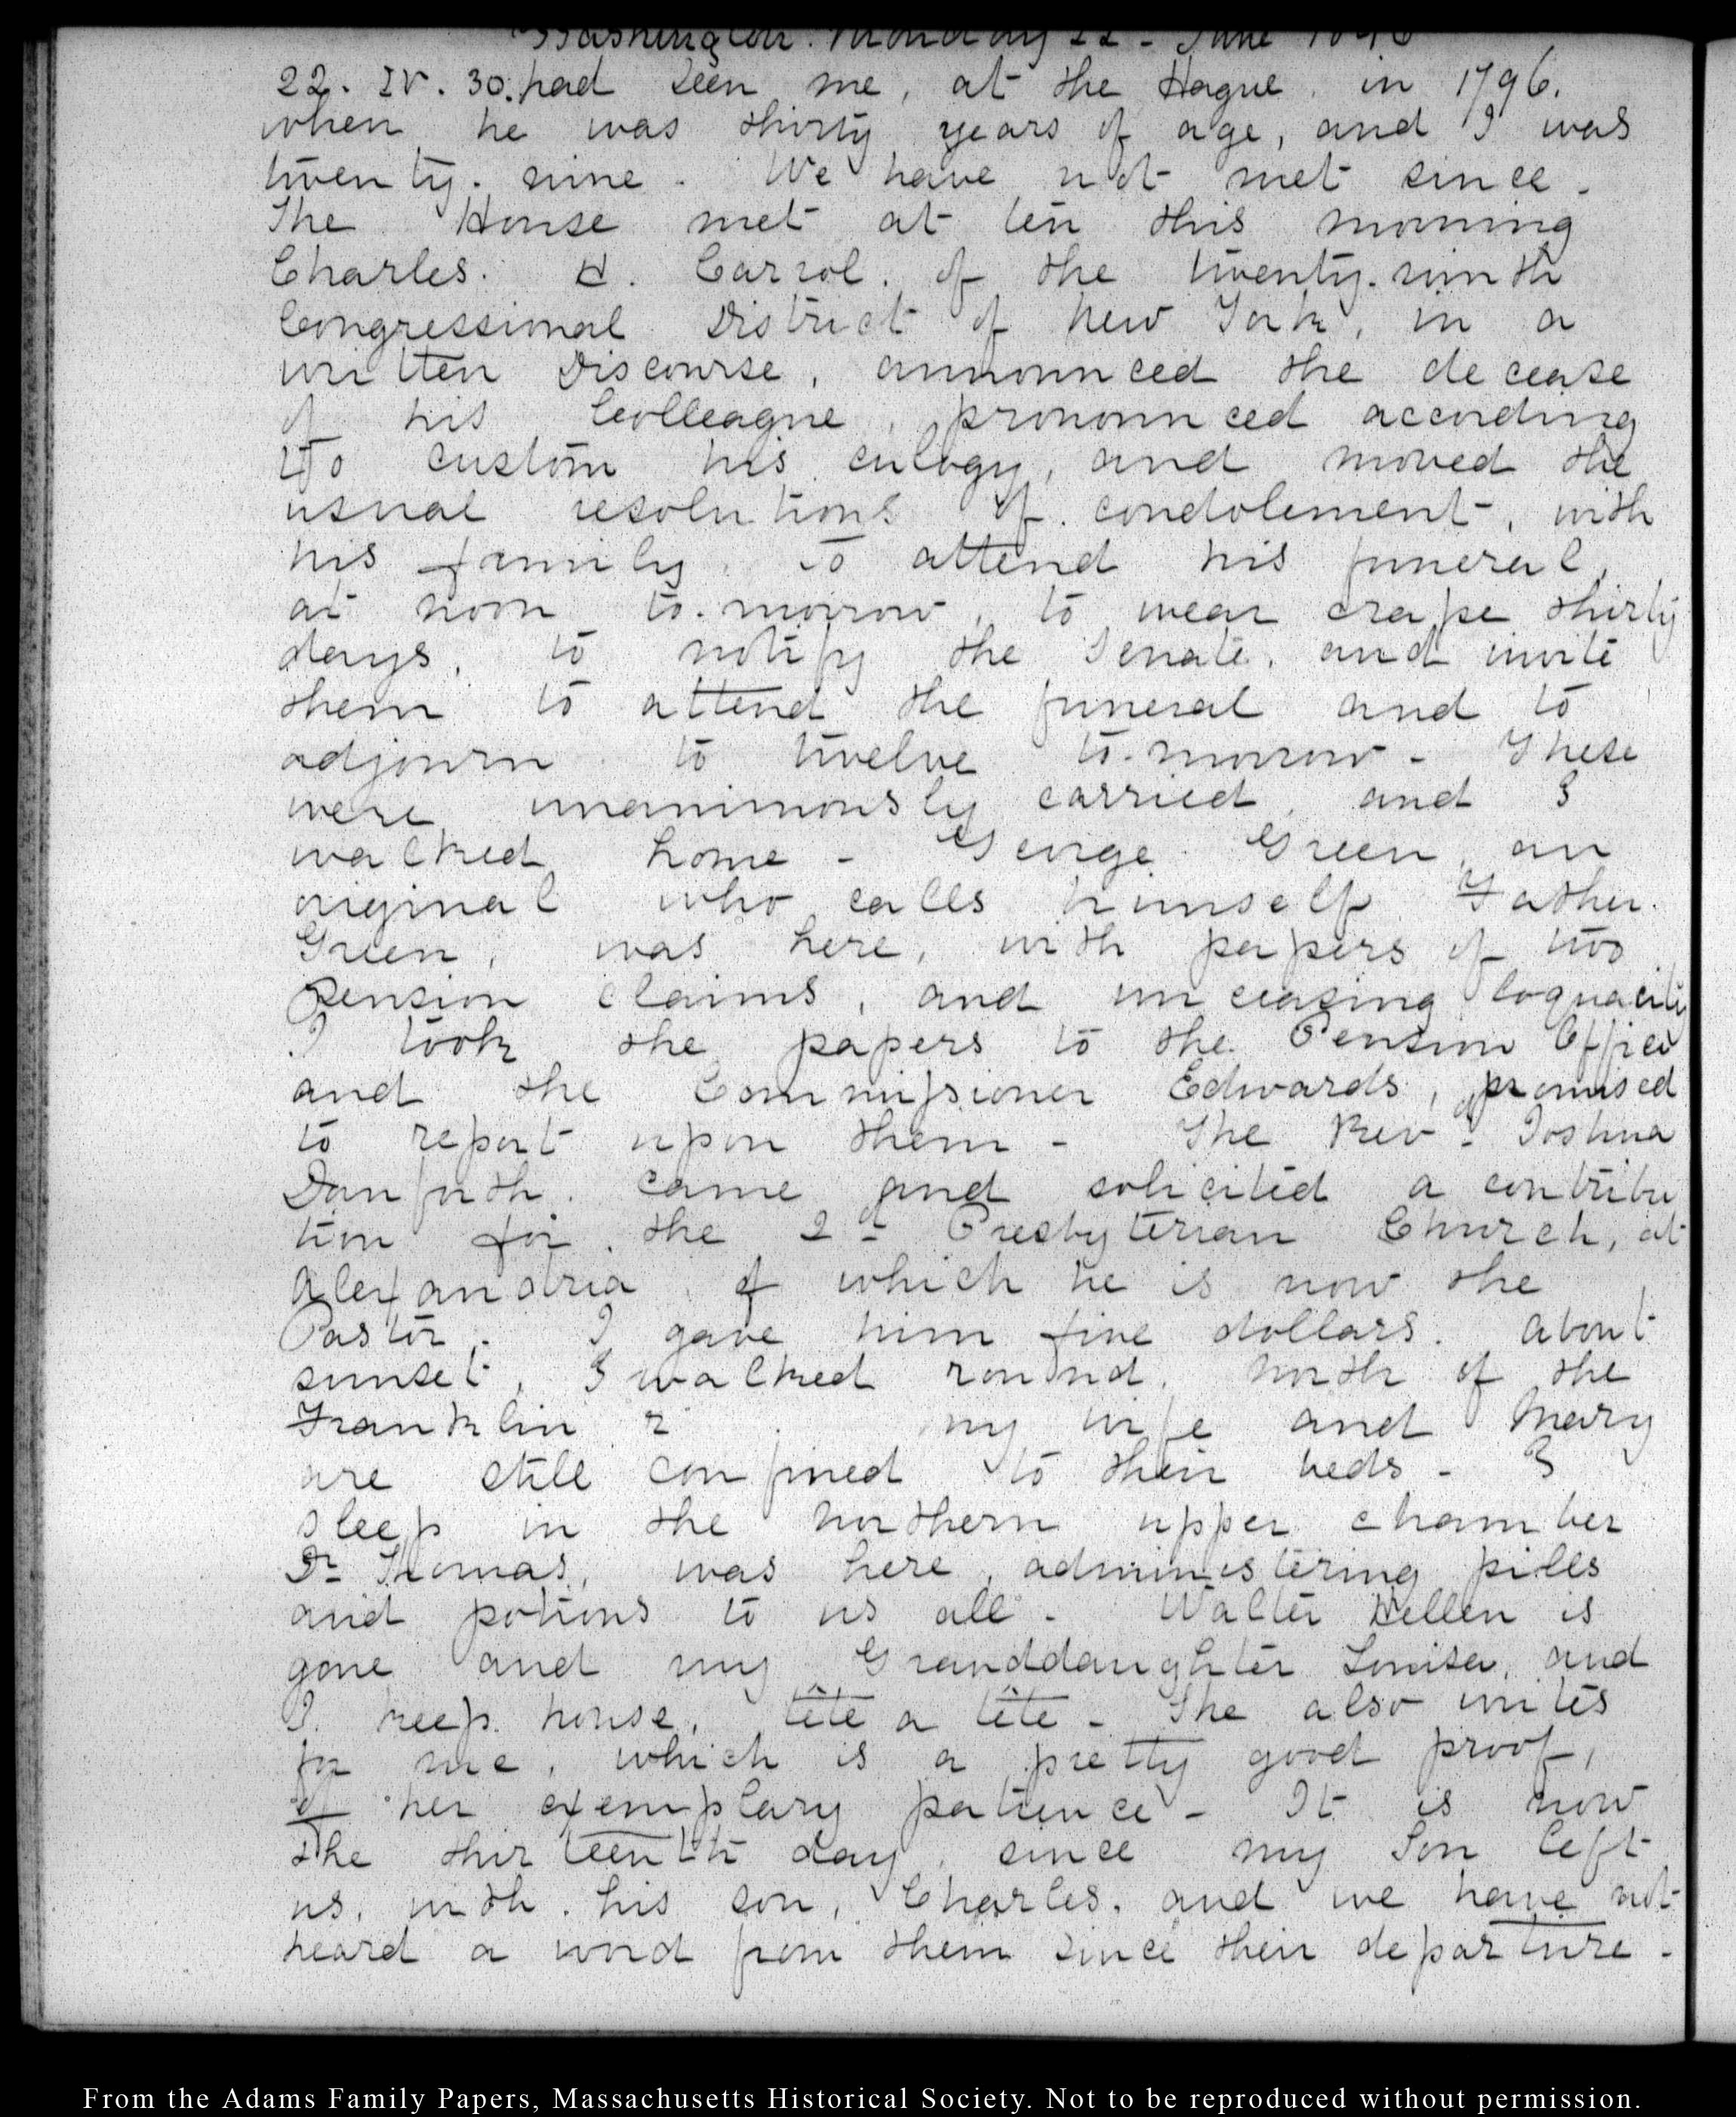 Washington. Monday 22 - June 1846
22. IV. 30. had seen me, at the Hague. in 1796.
when he was thirty years of age, and I was
twenty. nine. We have not met since -
The House met at ten this morning
Charles. H. Carrol. of the twenty. ninth
Congressional District of New York, in a
written Discourse, announced the decease
of his Colleague, pronounced according
to custom his eulogy, and moved the
usual resolutions of. condolement, with
his family. to attend his funeral,
at noon to. morrow, to wear crape thirty
days, to notify the Senate. and invite
them to attend the funeral and to
adjourn to twelve to. morrow - These
were unanimously carried, and I
walked home - George Green, an
original who calls himself Father.
Green, was here, with papers of two
Pension claims, and unceasing loquacity
I took the papers to the Pension Office
and the Commissioner Edwards, promised
to report upon them - The Revd. Joshua
Danforth. came and solicited a contribu
tion for. the 2d Presbyterian Church, at
Alexandria, of which he is now the
Pastor. I gave him five dollars. About
sunset, I walked round, North of the
Franklin my wife and Mary
are still confined to their beds - I
sleep in the northern upper chamber
Dr Thomas, was here, administering pills
and potions to us all - Walter Hellen is
gone and my Granddaughter Louisa, and
I. keep. house, tête a tête - She also writes
for me, which is a pretty good proof,
of her exemplary patience - It is now
the thirteenth day, since my Son left
us, with. his son, Charles. and we have not
heard a word from them since their departure -
From the Adams Family Papers, Massachusetts Historical Society. Not to be reproduced without permission.